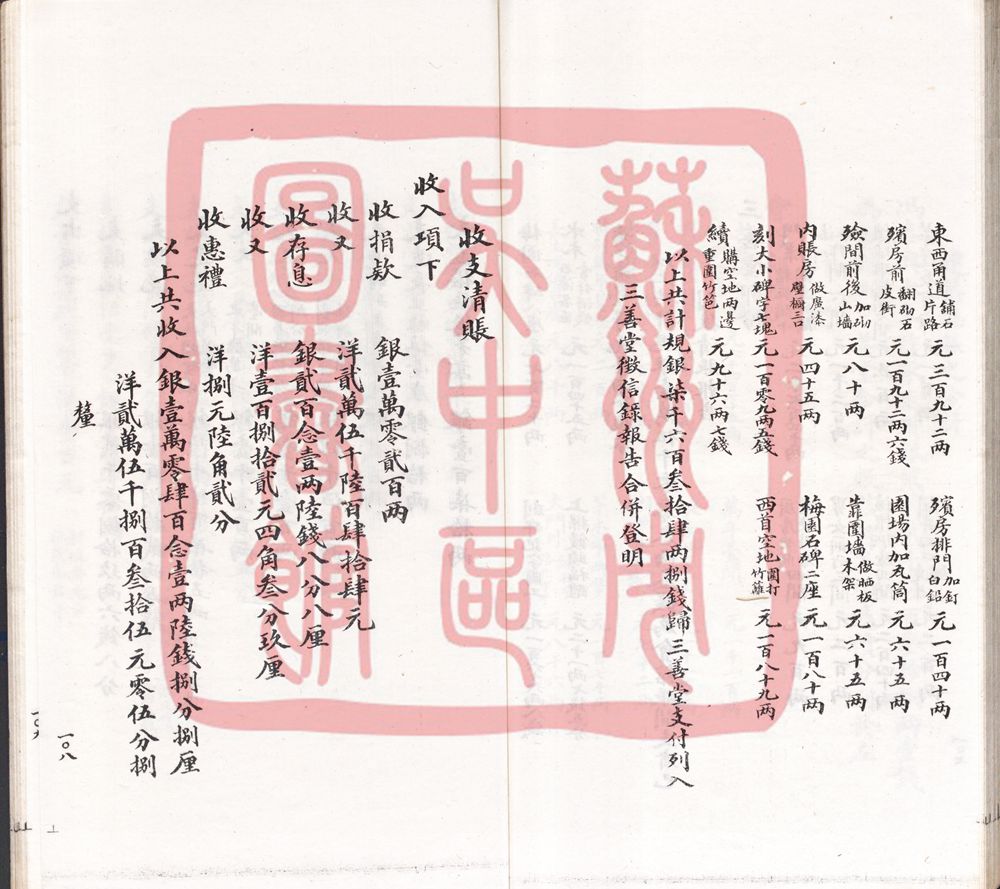 東西甬道鋪石片路 元三百九十二两 殯房排門加釘白鉛 元一百四十两
殯房前翻砌石皮街 元一百九十二两六錢 園場内加瓦筒 元六十五两
殮間前後加砌山墻 元八十两 靠圍墻做晒板木架 元六十五两
内賬房做廣漆壁櫥三口 元四十五两 梅園石碑二座 元一百八十两
刻大小碑字七塊 元一百零九两五錢 西首空地圍打竹籬 元一百八十九两
續購空地两邊重圍竹笆 元九十六两七錢
以上共計規銀柒千六百叁拾肆两捌錢歸三善堂支付列入
三善堂徵信錄報告合併登明
收支清賬
收入項下
收捐欵 銀壹萬零貳百两
收又 洋貳萬伍千陸百肆拾肆元
收存息 銀貳百念壹两陸錢八分八厘
收又 洋壹百捌拾貳元四角叁分玖厘
收惠禮 洋捌元陸角貳分
以上共收入銀壹萬零肆百念壹两陸錢捌分捌厘
洋貳萬伍千捌百叁拾伍元零伍分捌
釐
一〇八
蘇州市
吳中區
圖書館